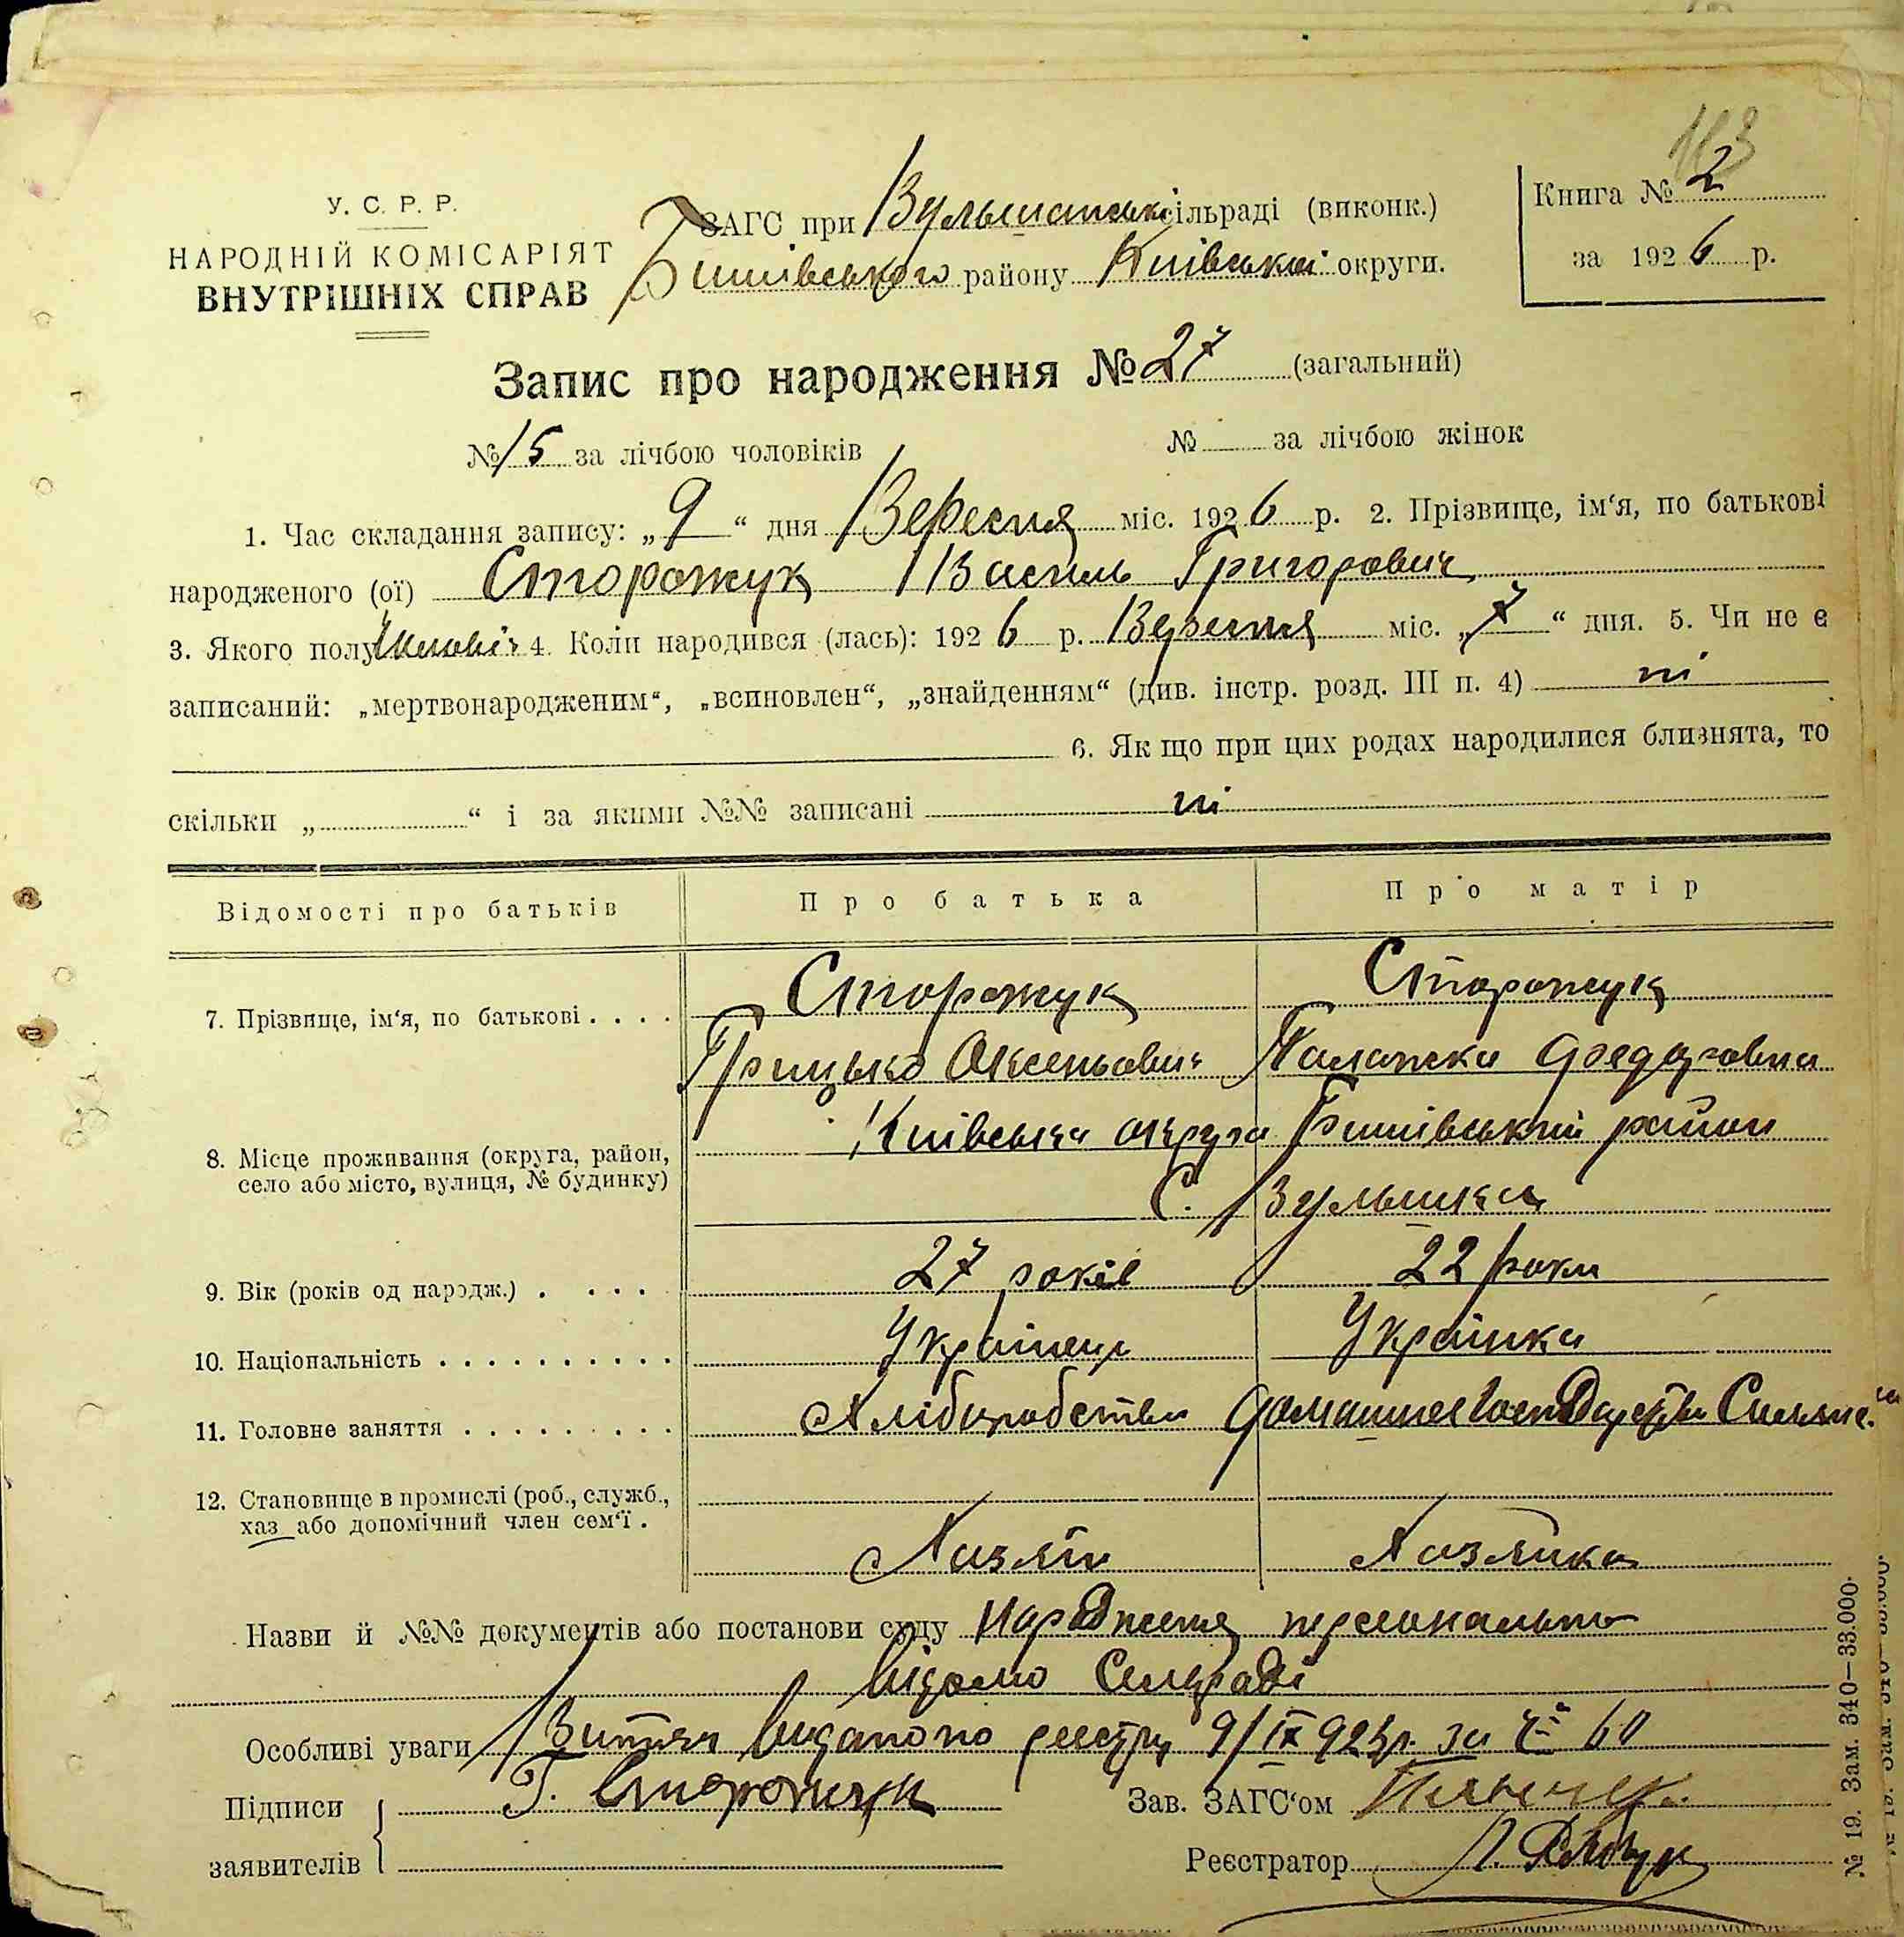 163
У. С. Р. Р.
НАРОДНІЙ КОМІСАРІЯТ
ВНУТРІШНІХ СПРАВ
ЗАГС при сільраді (виконк.)
району Київської округи.
Книга № 2
за 1926 р.
Запис про народження № 27 (загальний)
№ 15 за лічбою чоловіків № за лічбою жінок
1. Час складання запису: „ 9 “ дня Вересня міс. 1926 р. 2. Прізвище, ім‘я, по батькові
народженого (ої) Сторожук Василь Григорович
3. Якого полу 4. Коли народився (лась): 1926 р. Вересня міс. „ 7 “ дня. 5. Чи не є
записаний: „мертвонародженим“, „всиновлен“, „знайденням“ (див. інстр. розд. III п. 4) ні
6. Як що при цих родах народилися близнята, то
скільки „ “ і за якими №№ записані ні
Відомості про батьків Про батька Про матір
7. Прізвище, ім‘я, по батькові Сторожук Сторожук
Грицько Оксеньович Палажка Федоровна
8. Місце проживання (округа, район, село або місто, вулиця, № будинку) Київська округа Бишівський район
С.
9. Вік (років од народж.) 27 років 22 роки
10. Національність Українець Українка
11. Головне заняття Хліборобство
12. Становище в промислі (роб., служб., хаз або допомічний член сем‘ї. Хазяїн Хазяйка
Назви й №№ документів або постанови суду персонально
відомо Сельраді
Особливі уваги Витяг видано по реєстру 9/IX за № 60
Підписи заявителів Г. Сторожук
Зав. ЗАГС‘ом
Реєстратор
№ 19. Зам. 340—33.000.